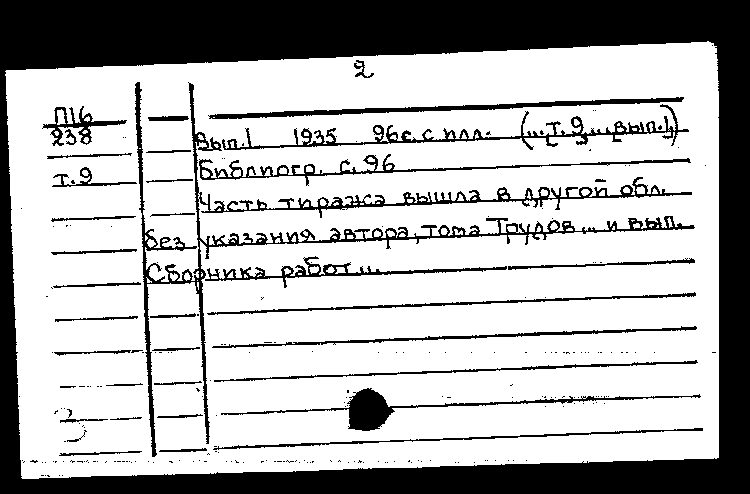 2
П16
238
т.9
Вып.1 1935 96с. с илл. (...т.9..., вып.1)
Библиогр. с.96
Часть тиража вышла в другой обл.
без указания автора, тома Трудов... и вып.
Сборника работ...
3